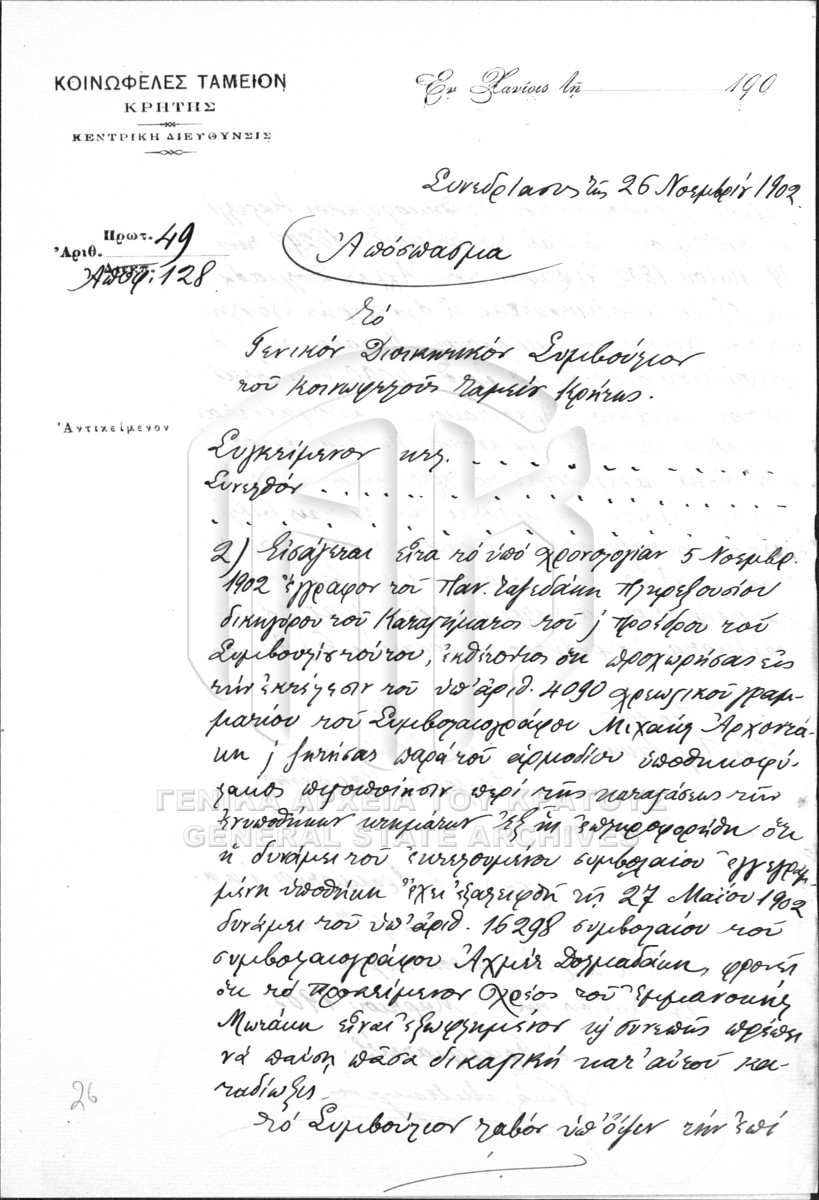 ΚΟΙΝΩΦΕΛΕΣ ΤΑΜΕΙΟΝ
ΚΡΗΤΗΣ
ΚΕΝΤΡΙΚΗ ΔΙΕΥΘΥΝΣΙΣ
Ἐν Χανίοις τῇ 190
Συνεδρίασις τῆς 26 Νοεμβρίου 1902
Πρωτ. 49
Ἀριθ.
Ἀποφ: 128
Ἀπόσπασμα
Τὸ
Γενικὸν Διοικητικὸν Συμβούλιον
τοῦ Κοινωφελοῦς Ταμείου Κρήτης.
Ἀντικείμενον
Συγκείμενον κτλ.
Συνελθὸν
2) Εἰσάγεται εἶτα τὸ ὑπὸ χρονολογίαν 5 Νοεμβρ.
1902 ἔγγραφον τοῦ Παν. πληρεξουσίου
δικηγόρου τοῦ Καταστήματος τοῦ ϳ Προέδρου τοῦ
Συμβουλίου τούτου, ἐκθέσαντος ὅτι προχωρήσας εἰς
τὴν ἐκτέλεσιν τοῦ ὑπ' ἀριθ. 4090 χρεωλικοῦ γραμ-
ματίου τοῦ Συμβολαιογράφου Μιχαὴλ Ἀρχοντά-
κη ϳ ζητήσας παρὰ τοῦ ἁρμοδίου ὑποθηκοφύ-
λακος πιστοποίησιν περὶ τῆς καταστάσεως τῶν
ἐνυποθήκων κτημάτων ἐξ ἧς ἐπληροφορήθη ὅτι
ἡ δυνάμει τοῦ ἐκτελουμένου συμβολαίου ἐγγεγραμ-
μένη ὑποθήκη ἔχει ἐξαλειφθῆ τῇ 27 Μαΐου 1902
δυνάμει τοῦ ὑπ' ἀριθ. 16298 συμβολαίου τοῦ
συμβολαιογράφου Ἀχμὲτ φρονεῖ
ὅτι τὸ προκείμενον χρέος τοῦ Ἐμμανουὴλ
Μωτάκη εἶναι ἐξωφλημένον ϗ συνεπῶς πρέπει
νὰ παύσῃ πᾶσα δικαστικὴ κατ' αὐτοῦ κα-
ταδίωξις.
Τὸ Συμβούλιον λαβὸν ὑπ' ὄψιν τὴν ἐπὶ
26
ΓΕΝΙΚΑ ΑΡΧΕΙΑ ΤΟΥ ΚΡΑΤΟΥΣ
GENERAL STATE ARCHIVES